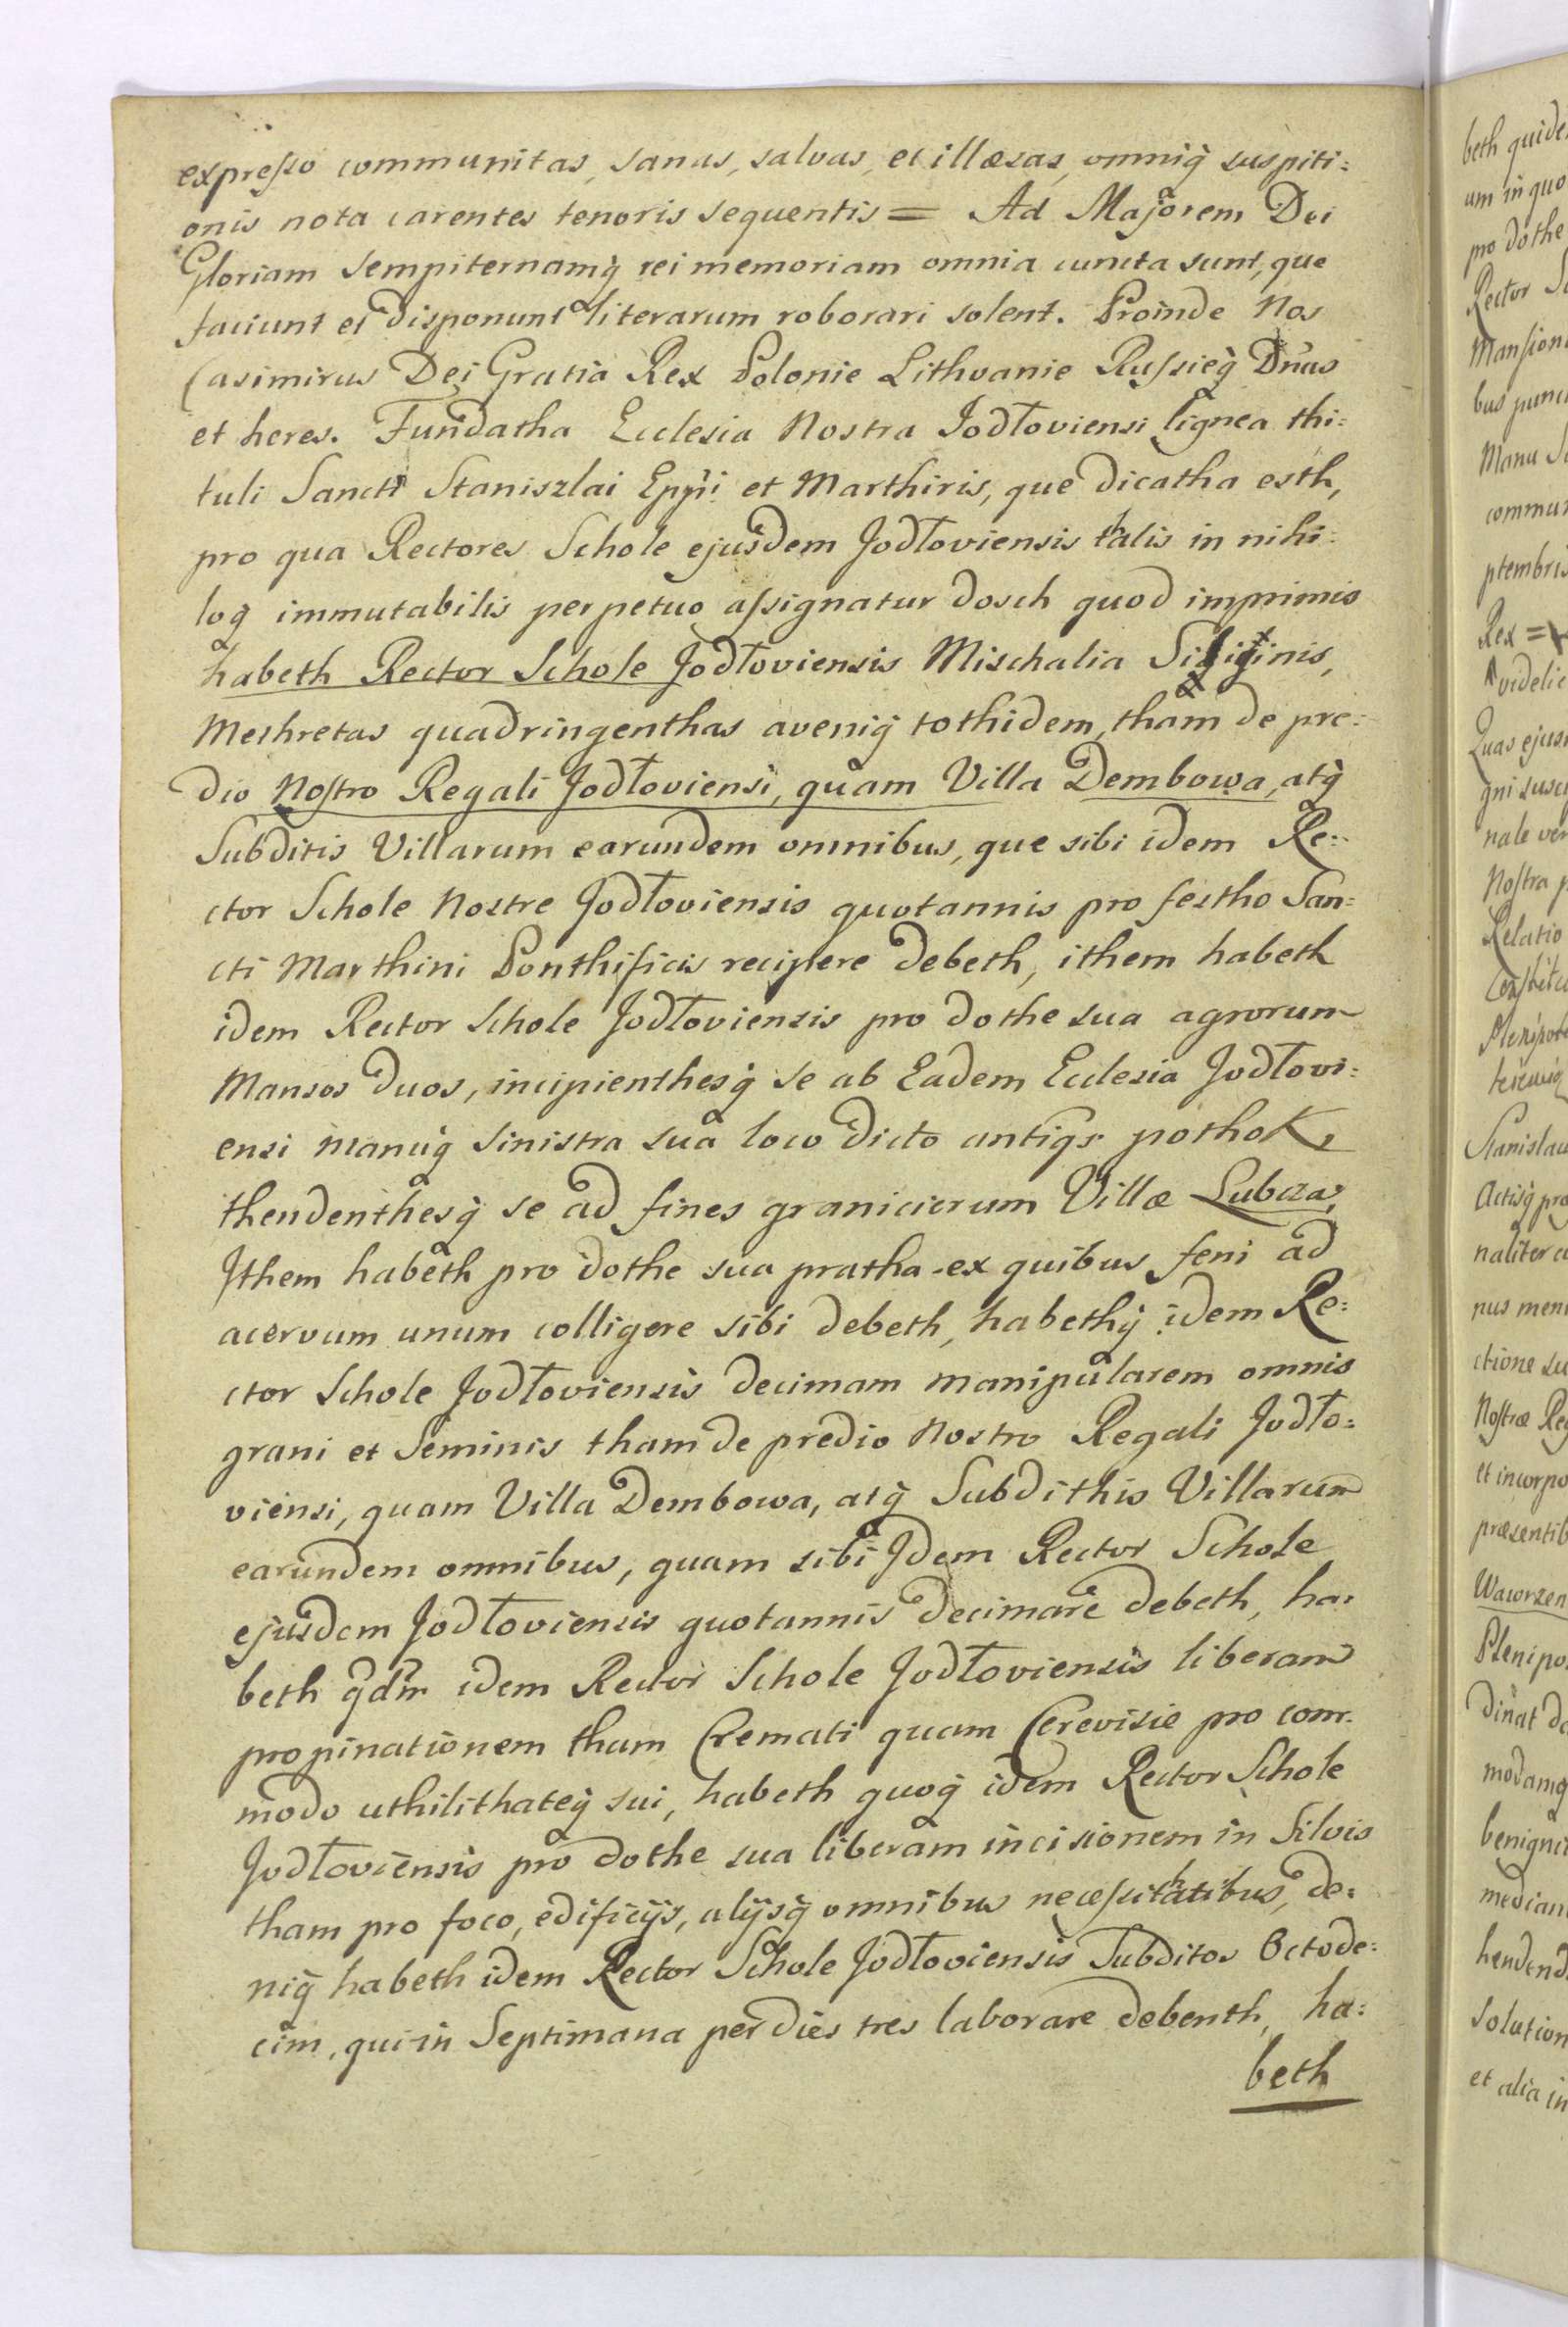 expresso communitas, sanas, salvas, et illæsas, omniq̀ suspiti:
onis nota carentes tenoris sequentis = Ad Majorem Dei
Gloriam Sempiternamq̀ rei memoriam omnia cuncta sunt, que
faciunt et disponunt literarum roborari solent. Proinde Nos
Casimirus Dei Gratia Rex Polonie Lithvanie Russieq̀ Dnus
et heres. Fundatha Ecclesia Nostra Jodłoviensi lignea thi:
tuli Sancti Staniszlai Eppi et Marthiris, que dicatha esth,
pro qua Rectores Schole ejusdem Jodłoviensis thalis in nihi:
loq̀ immutabilis perpetuo assignatur dosch quod imprimis
habeth Rector Schole Jodłoviensis Mischalia Siliginis,
Methretas quadringenthas aveniq̀ tothidem, tham de pre:
dio Nostro Regali Jodłoviensi, quam Villa Dembowa, atq̀
Subditis Villarum earundem omnibus, que sibi idem Re:
ctor Schole Nostre Jodłoviensis quotannis pro festho San:
cti Marthini Ponthificis recipere debeth, ithem habeth
idem Rector Schole Jodłoviensis pro dothe sua agrorum
Mansos duos, incipienthesq̀ se ab Eadem Ecclesia Jodłovi:
ensi manuq̀ sinistra sua loco dicto antiqs pothok,
thendenthesq̀ se ad fines granicierum Villæ Lubcza,
Ithem habeth pro dothe sua pratha ex quibus feni ad
acervum unum colligere sibi debeth, habethq̀ idem Re:
ctor Schole Jodłoviensis decimam manipularem omnis
grani et Seminis tham de predio Nostro Regali Jodło:
viensi, quam Villa Dembowa, atq̀ Subdithis Villarum
earundem omnibus, quam sibi Idem Rector Schole
ejusdem Jodłoviensis quotannis decimare debeth, ha:
beth qdm idem Rector Schole Jodłoviensis liberam
propinationem tham Cremati quam Cerevisie pro com:
modo uthilithateq̀ sui, habeth quoq̀ idem Rector Schole
Jodłoviensis pro dothe sua liberam incisionem in Silvis
tham pro foco, edificijs, alijsq̀ omnibus necessithatibus, de:
niq̀ habeth idem Rector Schole Jodłoviensis Subditos Octode:
cim, qui in Septimana per dies tres laborare debenth, ha:
beth
beth quide
um in quo
pro dothe
Rector
Mansion
bus punc
Manu
commun
ptembris
Rex =
videlic
Quas ejus
gni susc
nale
Nostra p
Relatio
Plenipote
Stanislau
Actisq̀ pro
naliter
pus men
ctione su
Nostræ Reg
et incorpo
præsentib
Wawrzen
Plenipo
dinat
modamq
benigni
median
hendend
Solution
et alia in